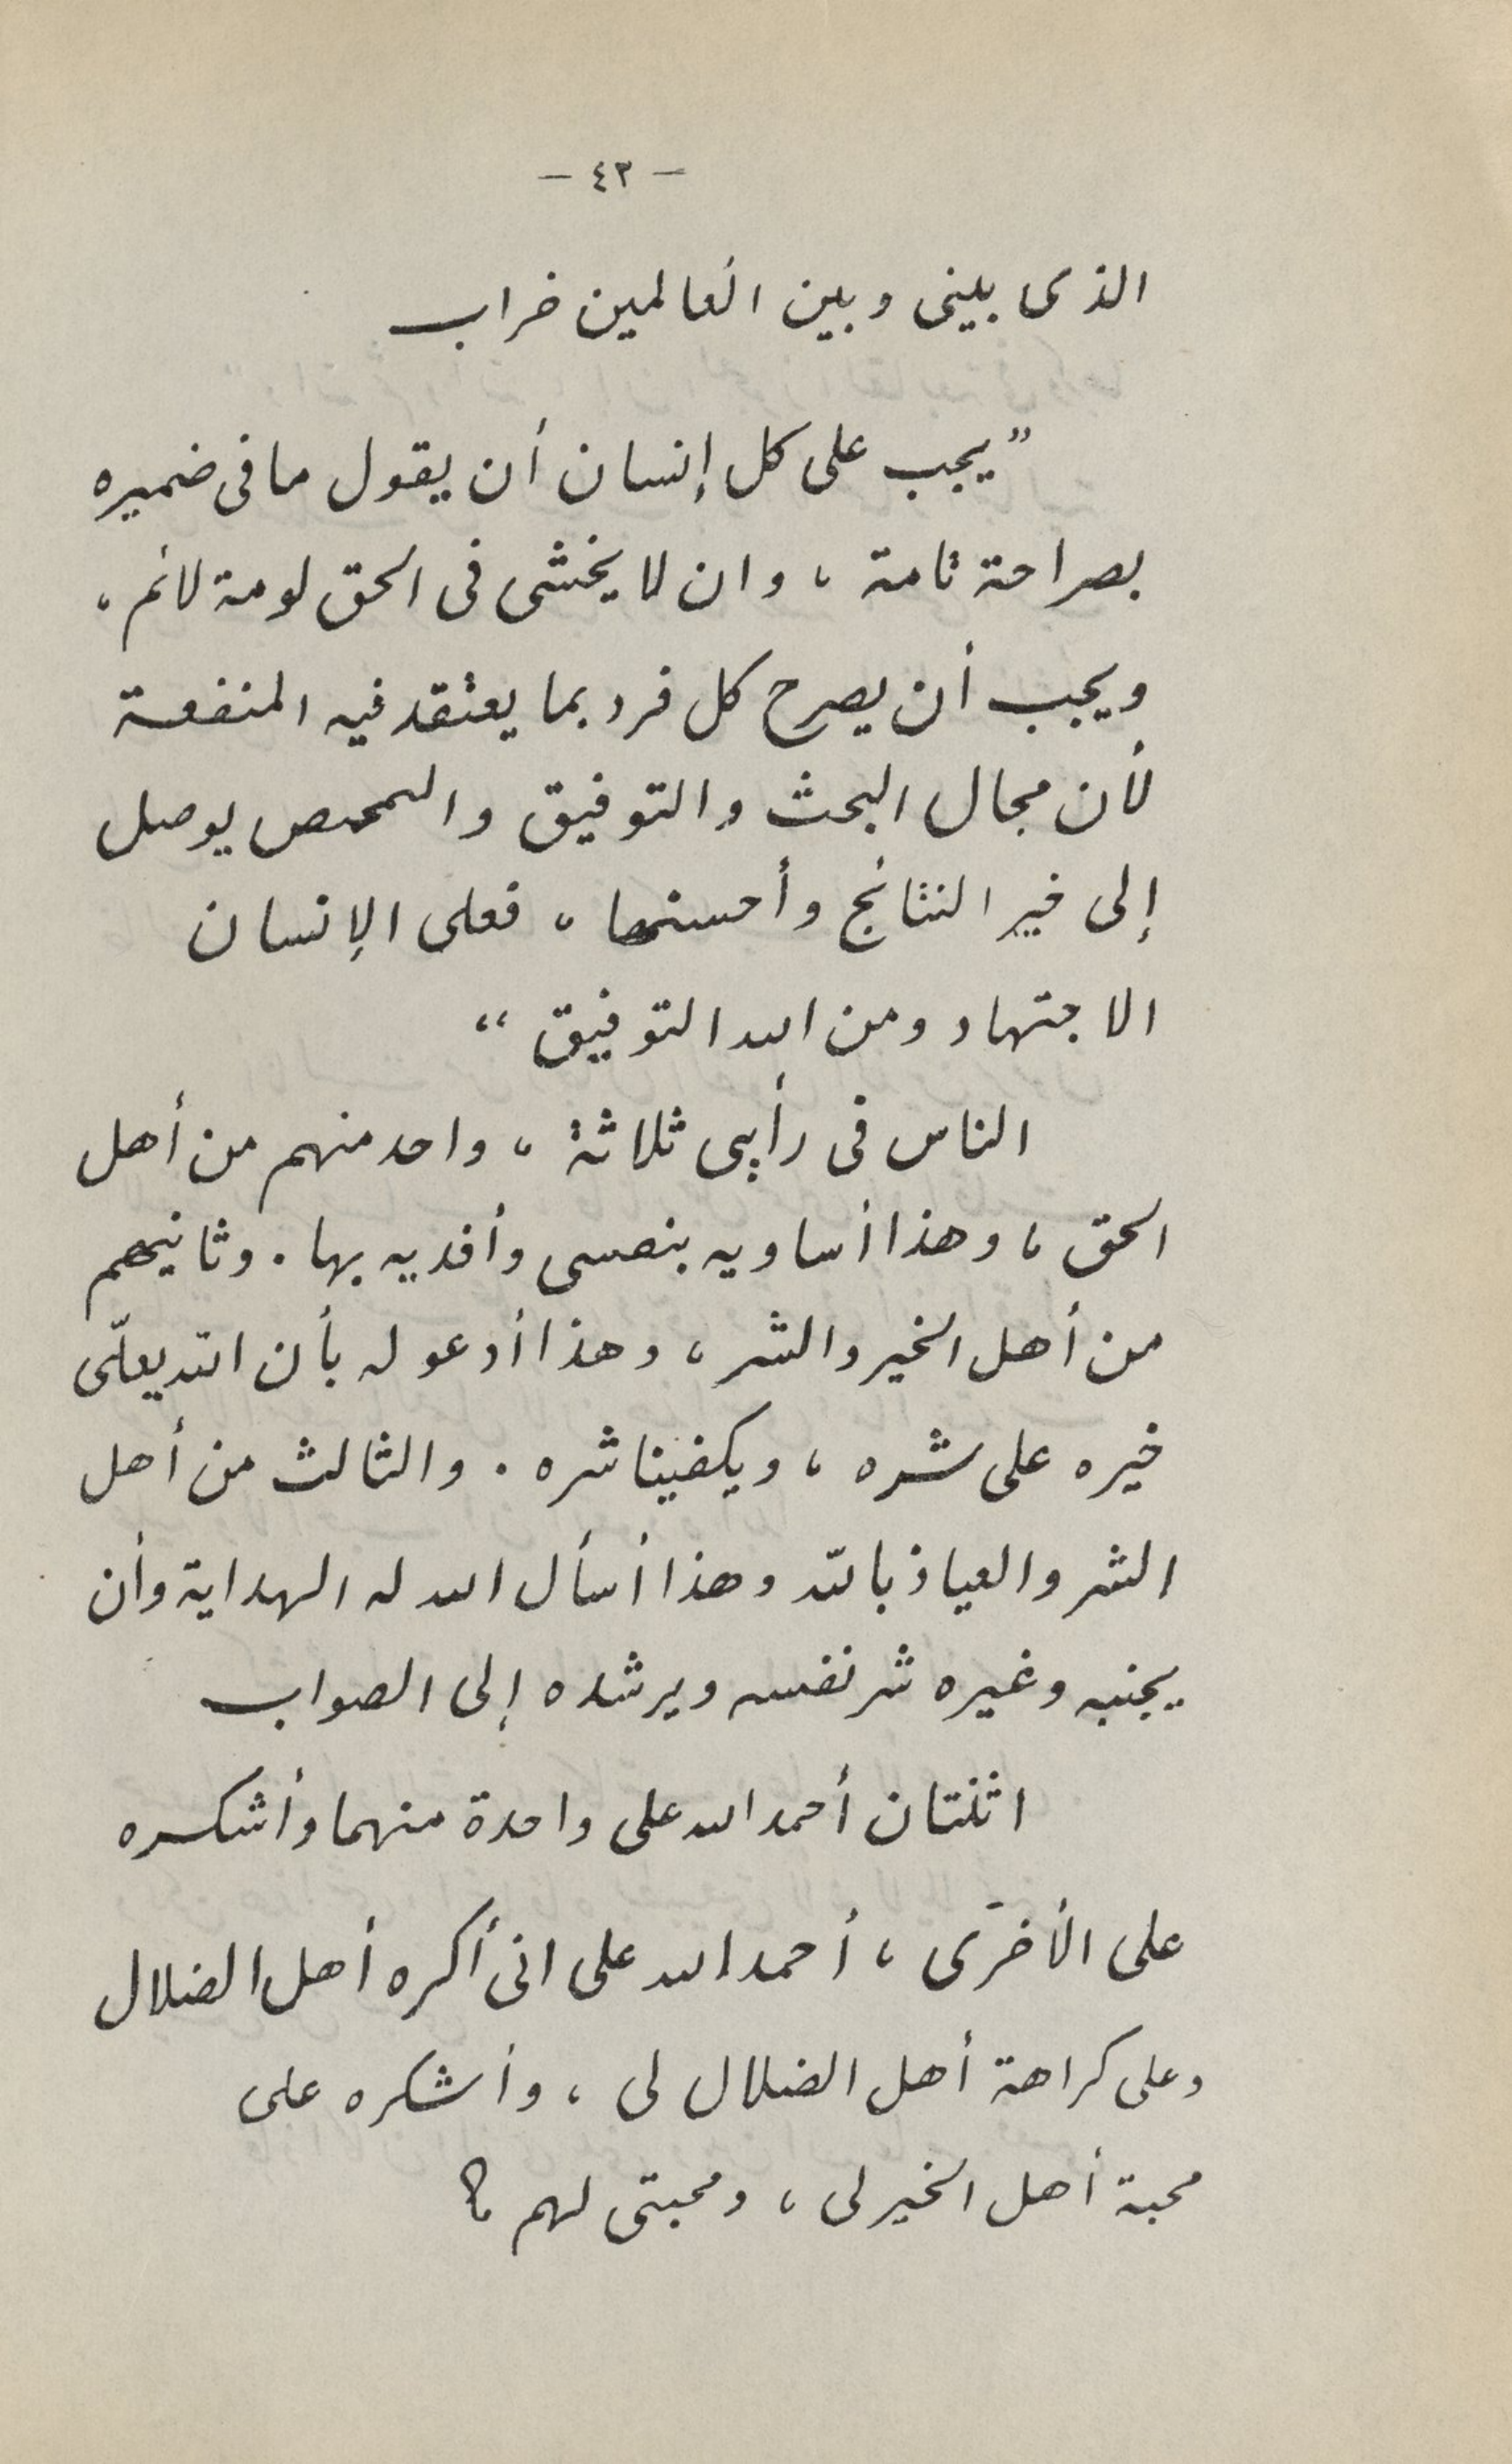 - ٤٢ -
الذى بينى وبين العالمين خراب
"يجب على كل إنسان أن يقول ما فى ضميره
بصراحة تامة ، وان لا يخشى فى الحق لومة لائم ،
ويجب أن يصرح كل فرد بما يعتقد فيه المنفعة
لأن مجال البحث والتوفيق والتمحص يوصل
إلى خير النتائج وأحسنها ، فعلى الإنسان
الاجتهاد ومن الله التوفيق "
الناس فى رأيى ثلاثة ، واحد منهم من أهل
الحق ، وهذا أساويه بنفسى وأفديه بها . وثانيهم
من أهل الخير والشر ، وهذا أدعو له بأن الله يعلّى
خيره على شره ، ويكفينا شره . والثالث من أهل
الشر والعياذ بالله وهذا أسأل الله له الهداية وأن
يجنبه وغيره شر نفسه ويرشده إلى الصواب
اثنتان أحمد الله على واحدة منهما وأشكره
على الأخرى ، أحمد الله على انى أكره أهل الضلال
وعلى كراهة أهل الضلال لى ، وأشكره على
محبة أهل الخير لى ، ومحبتى لهم